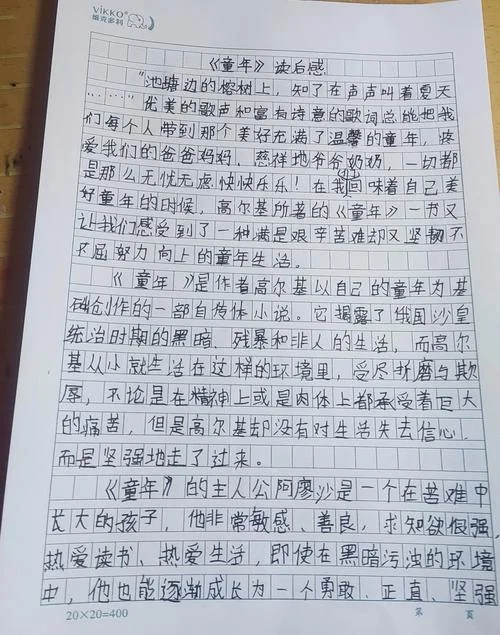 ViKKO
维克多利
《童年》读后感
“池塘边的榕树上，知了在声声叫着夏天
……”优美的歌声和富有诗意的歌词总能把我
们每个人带到那个美好充满了温馨的童年，疼
爱我们的爸爸妈妈、慈祥地爷爷奶奶，一切都
是那么无忧无虑快快乐乐！在我们回味着自己美
好童年的时候，高尔基所著的《童年》一书又
让我们感受到了一种满是艰辛苦难却又坚韧不
不屈努力向上的童年生活。
《童年》是作者高尔基以自己的童年为基
础创作的一部自传体小说。它揭露了俄国沙皇
统治时期的黑暗、残暴和非人的生活，而高尔
基从小就生活在这样的环境里，受尽折磨与欺
辱，不论是在精神上或是肉体上都承受着巨大
的痛苦，但是高尔基却没有对生活失去信心，
而是坚强地走了过来。
《童年》的主人公阿廖沙是一个在苦难中
长大的孩子，他非常敏感、善良，求知欲很强，
热爱读书、热爱生活，即使在黑暗污浊的环境
中，他也能逐渐成长为一个勇敢、正直、坚强
20×20=400 第 页